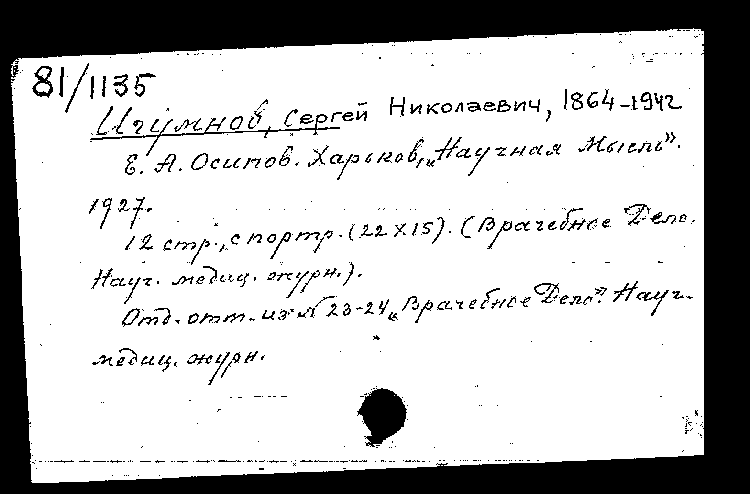 81/1135
Игумнов, Сергей Николаевич, 1864-1942
Е. А. Осипов. Харьков, „Научная Мысль".
1927.
12 стр., с портр. (22х15). (Врачебное Дело.
Науч. медиц. журн.).
Отд. отт. из № 23-24 „Врачебное Дело". Науч.
медиц. журн.